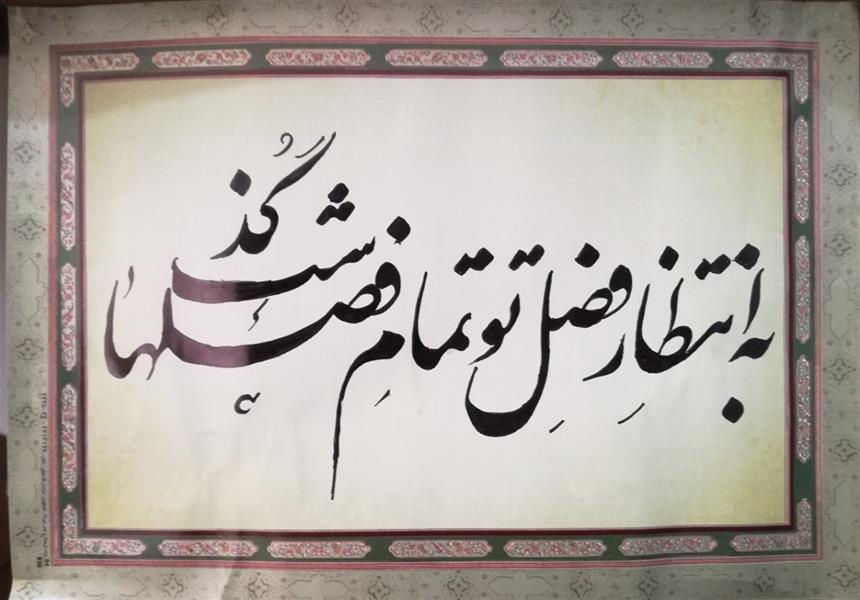 به انتظارِ فضلِ تو تمامِ فصلها گُذشت